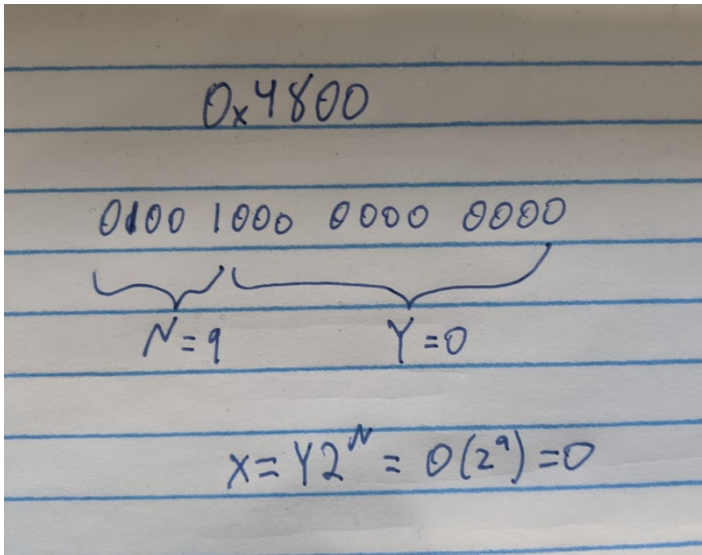 0x4800
0100 1000 0000 0000
N=9 Y=0
X=Y2^N = 0(2^9)=0